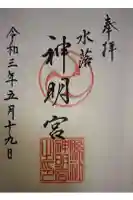 奉拝
水落
神明宮
令和三年五月十九日